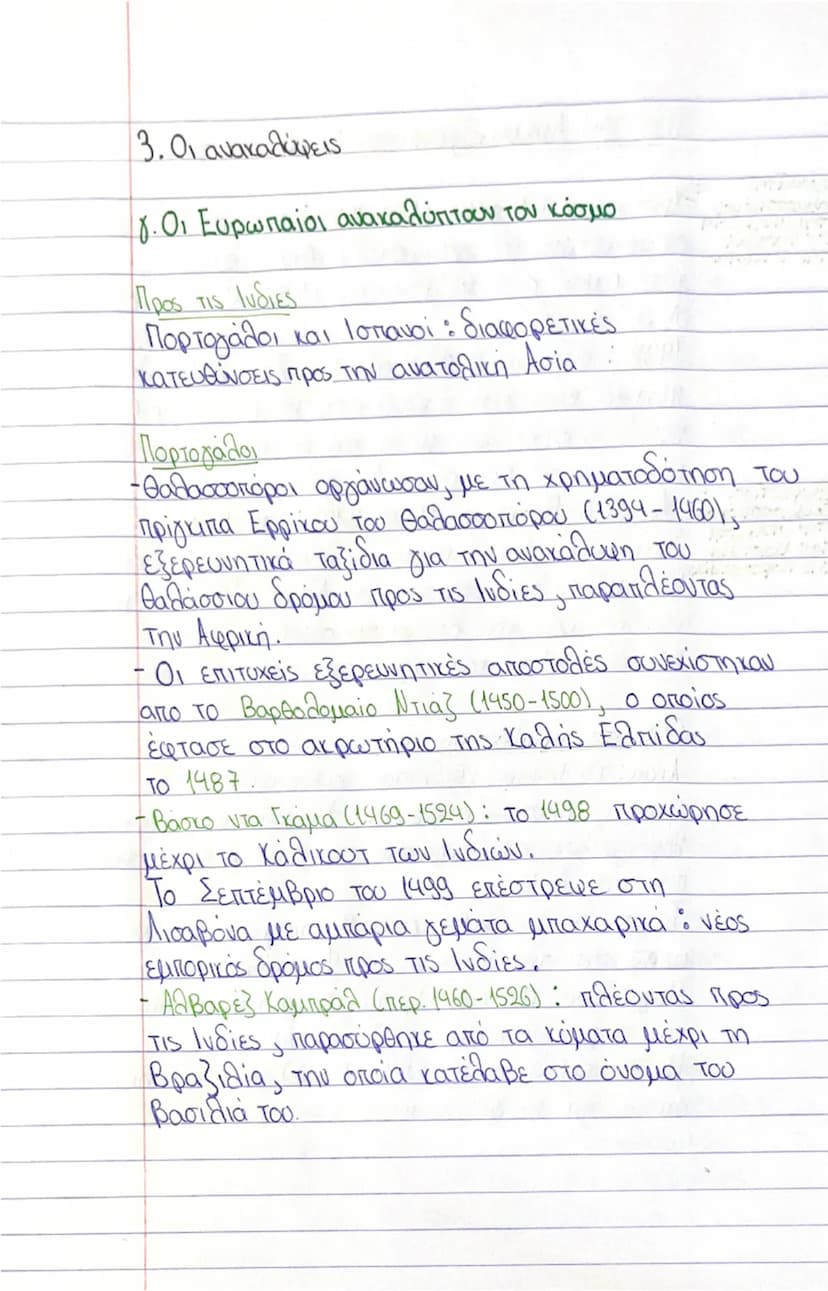 3. Οι ανακαλύψεις
γ. Οι Ευρωπαίοι ανακαλύπτουν τον κόσμο
Προς τις Ινδίες
Πορτογάλοι και Ισπανοί : διαφορετικές
κατευθύνσεις προς την ανατολική Ασία
Πορτογάλοι
-Θαλασσοπόροι οργάνωσαν, με τη χρηματοδότηση του
πρίγκιπα Ερρίκου του Θαλασσοπόρου (1394-1460),
εξερευνητικά ταξίδια για την ανακάλυψη του
θαλάσσιου δρόμου προς τις Ινδίες, παραπλέοντας
την Αφρική.
- Οι επιτυχείς εξερευνητικές αποστολές συνεχίστηκαν
απο το Βαρθολομαίο Ντιάζ (1450-1500), ο οποίος
έφτασε στο ακρωτήριο της Καλής Ελπίδας
το 1487.
- Βάσκο ντα Γκάμα (1469-1524) : το 1498 προχώρησε
μέχρι το Κάλικουτ των Ινδιών.
Το Σεπτέμβριο του 1499 επέστρεψε στη
Λισαβόνα με αμπάρια γεμάτα μπαχαρικά : νέος
εμπορικός δρόμος προς τις Ινδίες.
- Αλβαρέζ Καμπράλ (περ. 1460-1526) : πλέοντας προς
τις Ινδίες, παρασύρθηκε από τα κύματα μέχρι τη
Βραζιλία, την οποία κατέλαβε στο όνομα του
βασιλιά του.